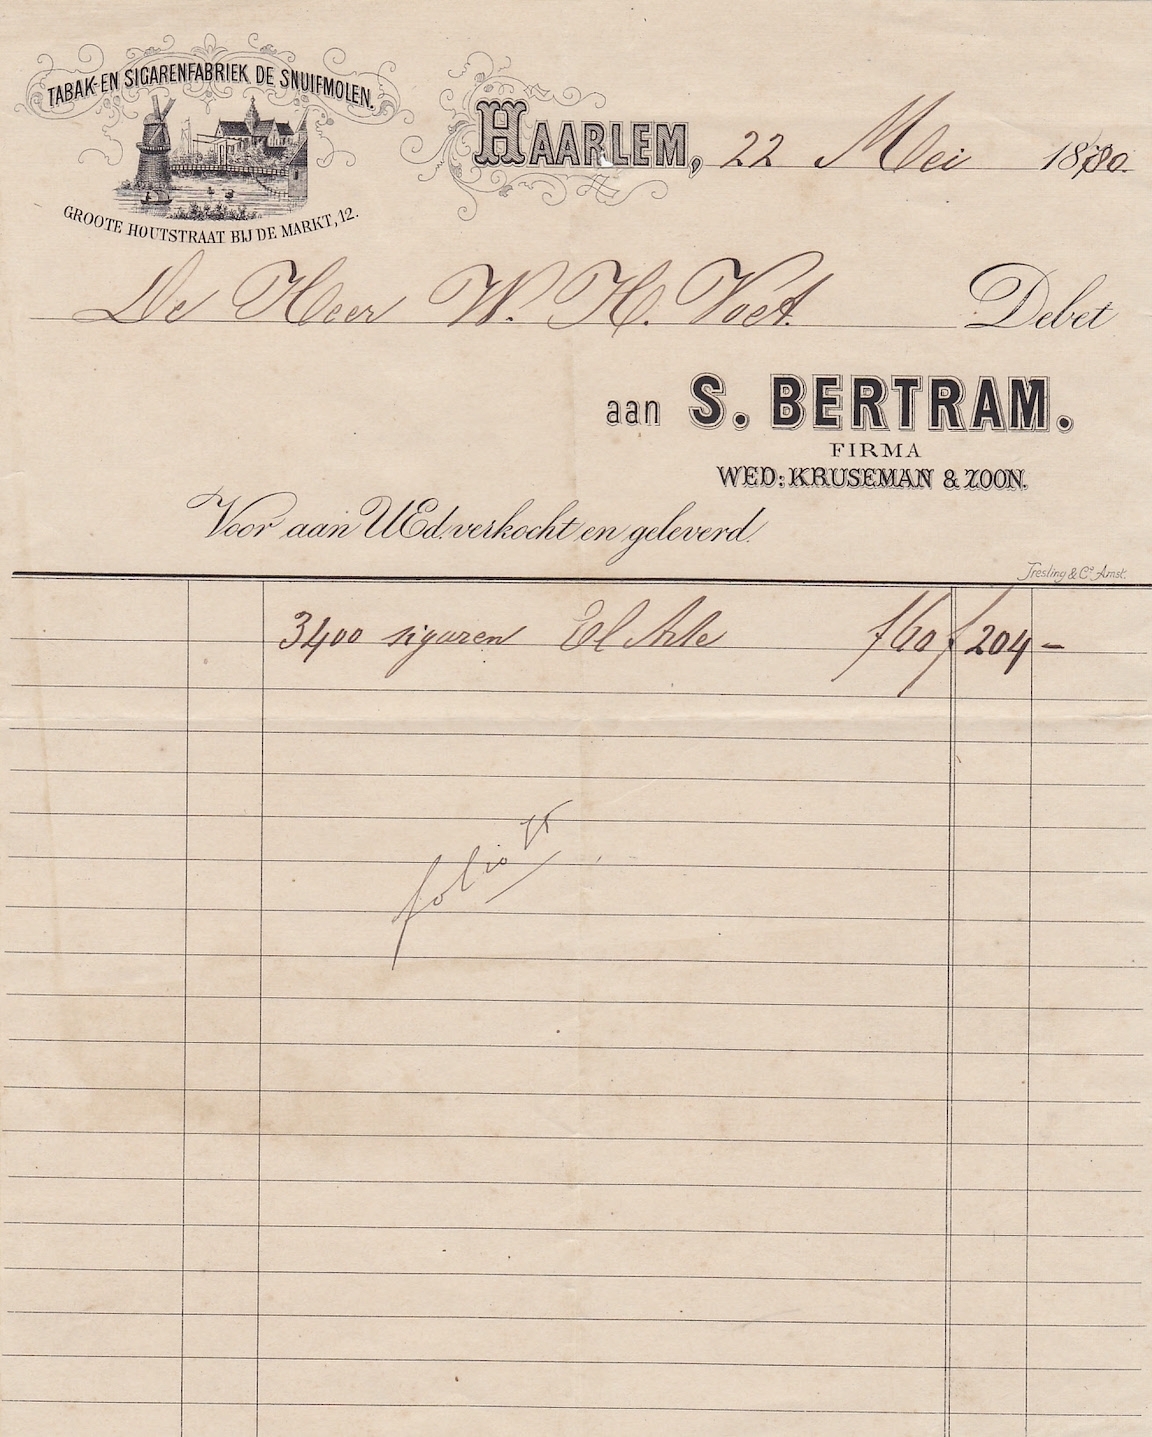 TABAK- EN SIGARENFABRIEK DE SNUIFMOLEN.
GROOTE HOUTSTRAAT BIJ DE MARKT, 12.
HAARLEM, 22 Mei 1880.
De Heer W. H. Voet. Debet
aan S. BERTRAM.
FIRMA
WED: KRUSEMAN & ZOON.
Voor aan UEd. verkocht en geleverd.
Tresling & Co. Amst.
3400 sigaren El Arte f 60 f 204 -
folio